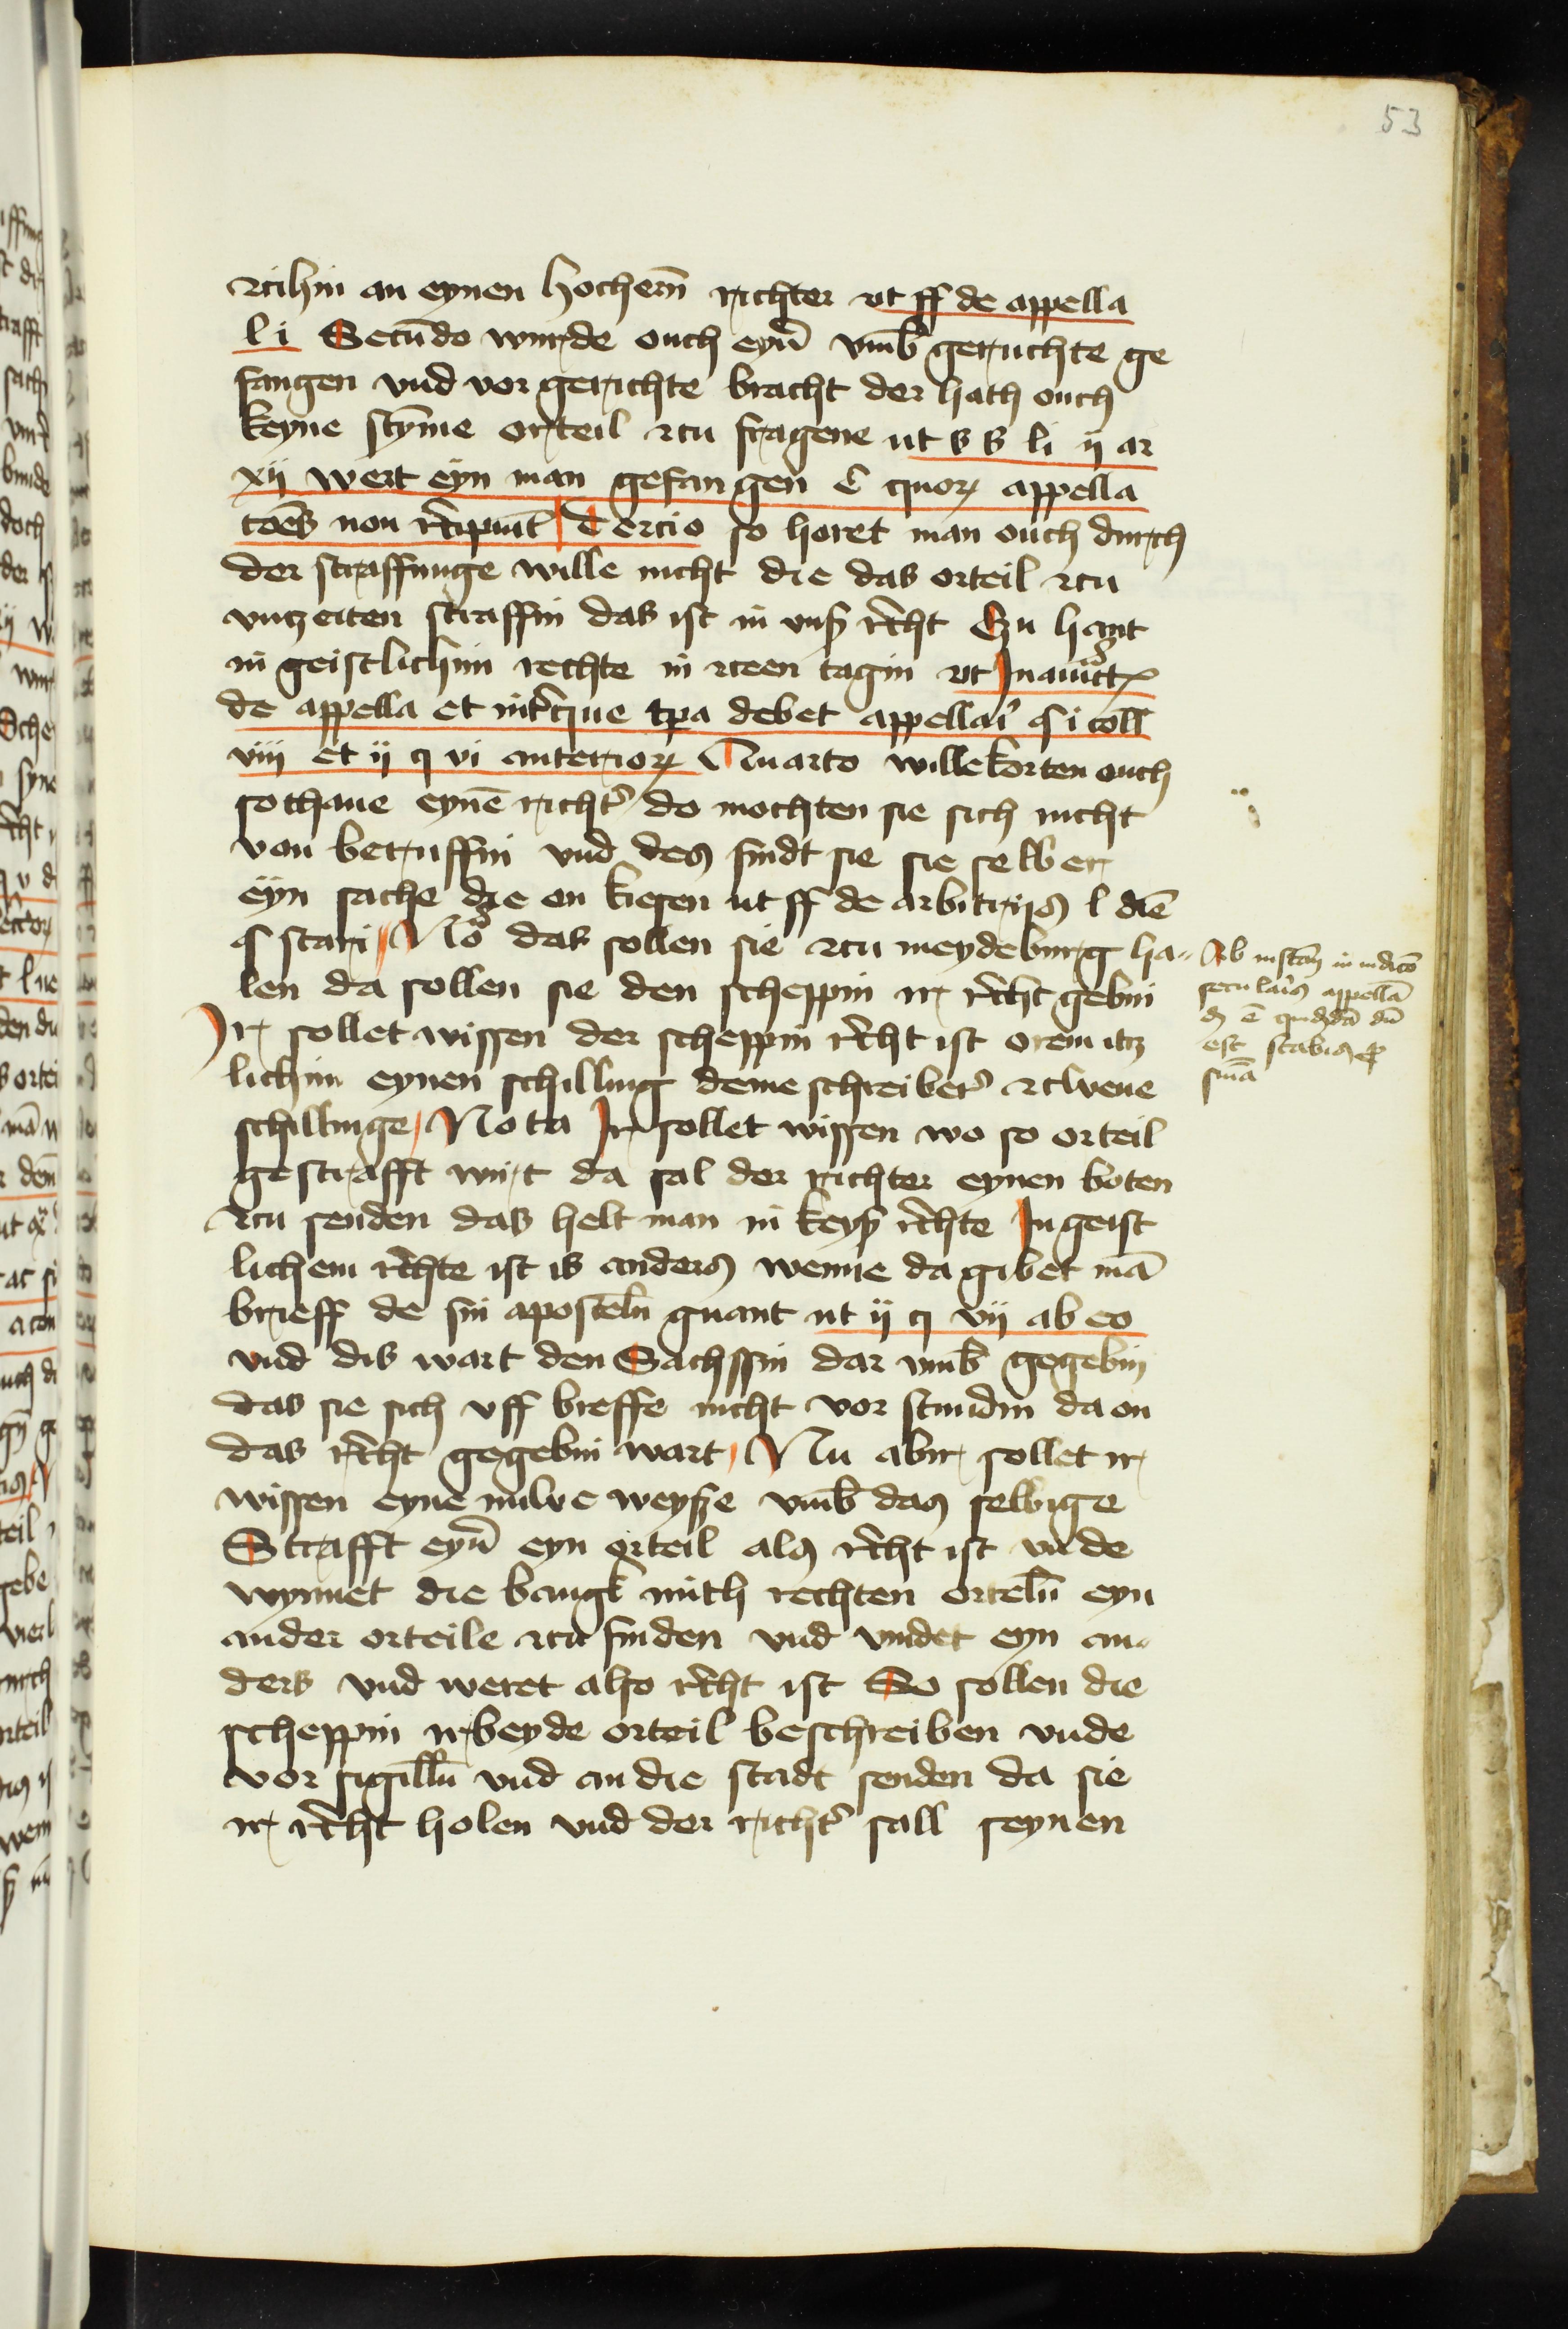 53
rcihin an eynen hochern̄ richter vt ff de appella
l i Secūdo wurde ouch eyn̄ vmb̄ geruchte ge
fangen vnd vor gerichte bracht der hath ouch
keyne stȳme orteil rcu fragene ut s s li ij ar
xij wert eyn man gefangen c̄ quorꝝ appella
coēs non r̄cipiūt Tercio so horet man ouch durch
der straffunge wille nicht die das orteil rcu
vnczeiten straffin das ist in vnsꝫ r̄cht Czu hant
in geistlichim rechte in rceen tagin vt
de appella et int̄ que tp̄a debet appellai̾ si coll̄
viij et ij q vi anteriorꝝ Quarto willekorten ouch
sothane eynē richt̾ do mochten sie sich nicht
von beruffin vnd des findt sie sie selber
eyn sache die en kiesen ut ff de arbitrijs l diē
§ stari No̾ das sollen sie rcu meydeburg ha-
len da sollen sie den scheppin ir r̄cht gebin
Ir sollet wissen der scheppin r̄cht ist orem itz
lichim eynen schilling deme schreiber̾ rcwene
schillinge Nota Ir sollet wissen wo so orteil
gestrafft wirt da sal der richter eynen boten
rcu senden das helt man in keysꝫ r̄chte In geist
lichem r̄chte ist is anders wenne da gibet mā
brieff de sin aposteln̄ gnant ut ij q vij ab eo
vnd dis wart den Sachssin dar vmb̄ gegebin
das sie sich vff breffe nicht vor stundin da on
das r̄cht gegebin wart Nu abir sollet ir
wissen eyne nuwe weysze vmb̄ das selbige
Strafft eyn̄ eyn orteil als r̄cht ist vnde
wynnet die bangk mith rechten orteln̄ eyn
ander orteile rcu finden vnd vindet eyn an-
ders vnd weret also r̄cht ist So sollen die
scheppin ir beyde orteil beschreiben vnde
vor sigilln̄ vnd an die stadt senden da sie
ir r̄cht holen vnd der richt̾ sall seynen
seculari̾s appellā
est scabis